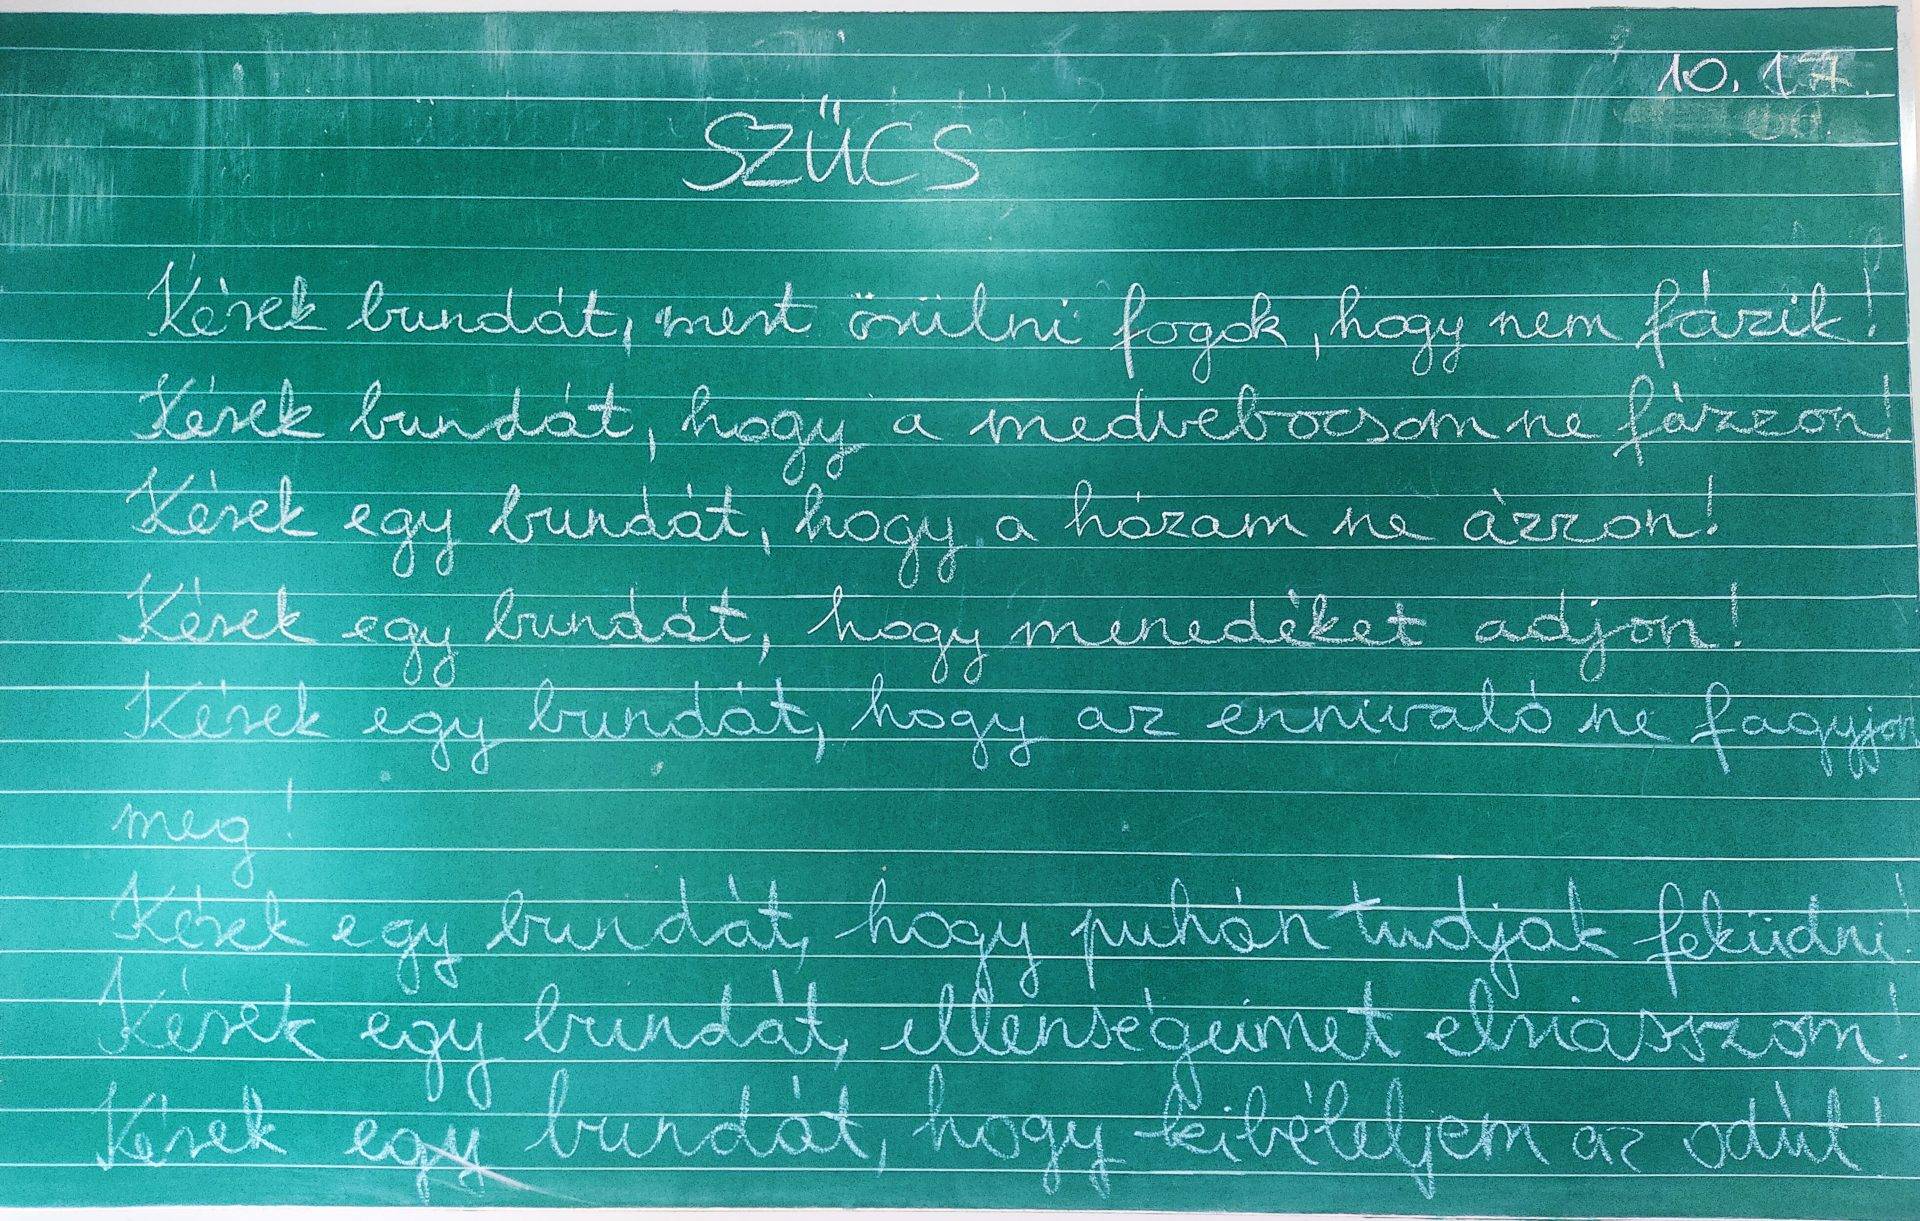 10.17.
SZŰCS
Kérek bundát, mert örülni fogok, hogy nem fázik!
Kérek bundát, hogy a medvebocsom ne fázzon!
Kérek egy bundát, hogy a házam ne ázzon!
Kérek egy bundát, hogy menedéket adjon!
Kérek egy bundát, hogy az ennivaló ne fagyjon
meg!
Kérek egy bundát, hogy puhán tudjak feküdni!
Kérek egy bundát, ellenségeimet elriasszom!
Kérek egy bundát, hogy kibéleljem az odút!